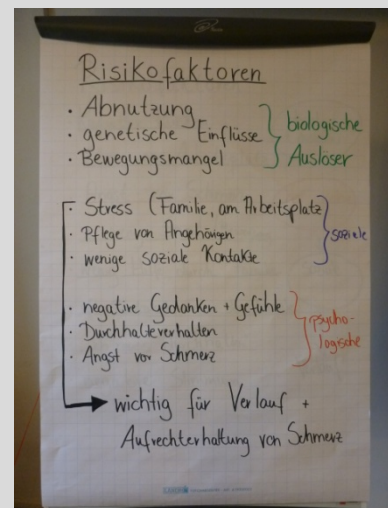 Risikofaktoren
· Abnutzung
· genetische Einflüsse
· Bewegungsmangel
biologische
Auslöser
· Stress (Familie, am Arbeitsplatz)
· Pflege von Angehörigen
· wenige soziale Kontakte
soziale
· negative Gedanken + Gefühle
· Durchhalteverhalten
· Angst vor Schmerz
psycho-
logische
wichtig für Verlauf +
Aufrechterhaltung von Schmerz